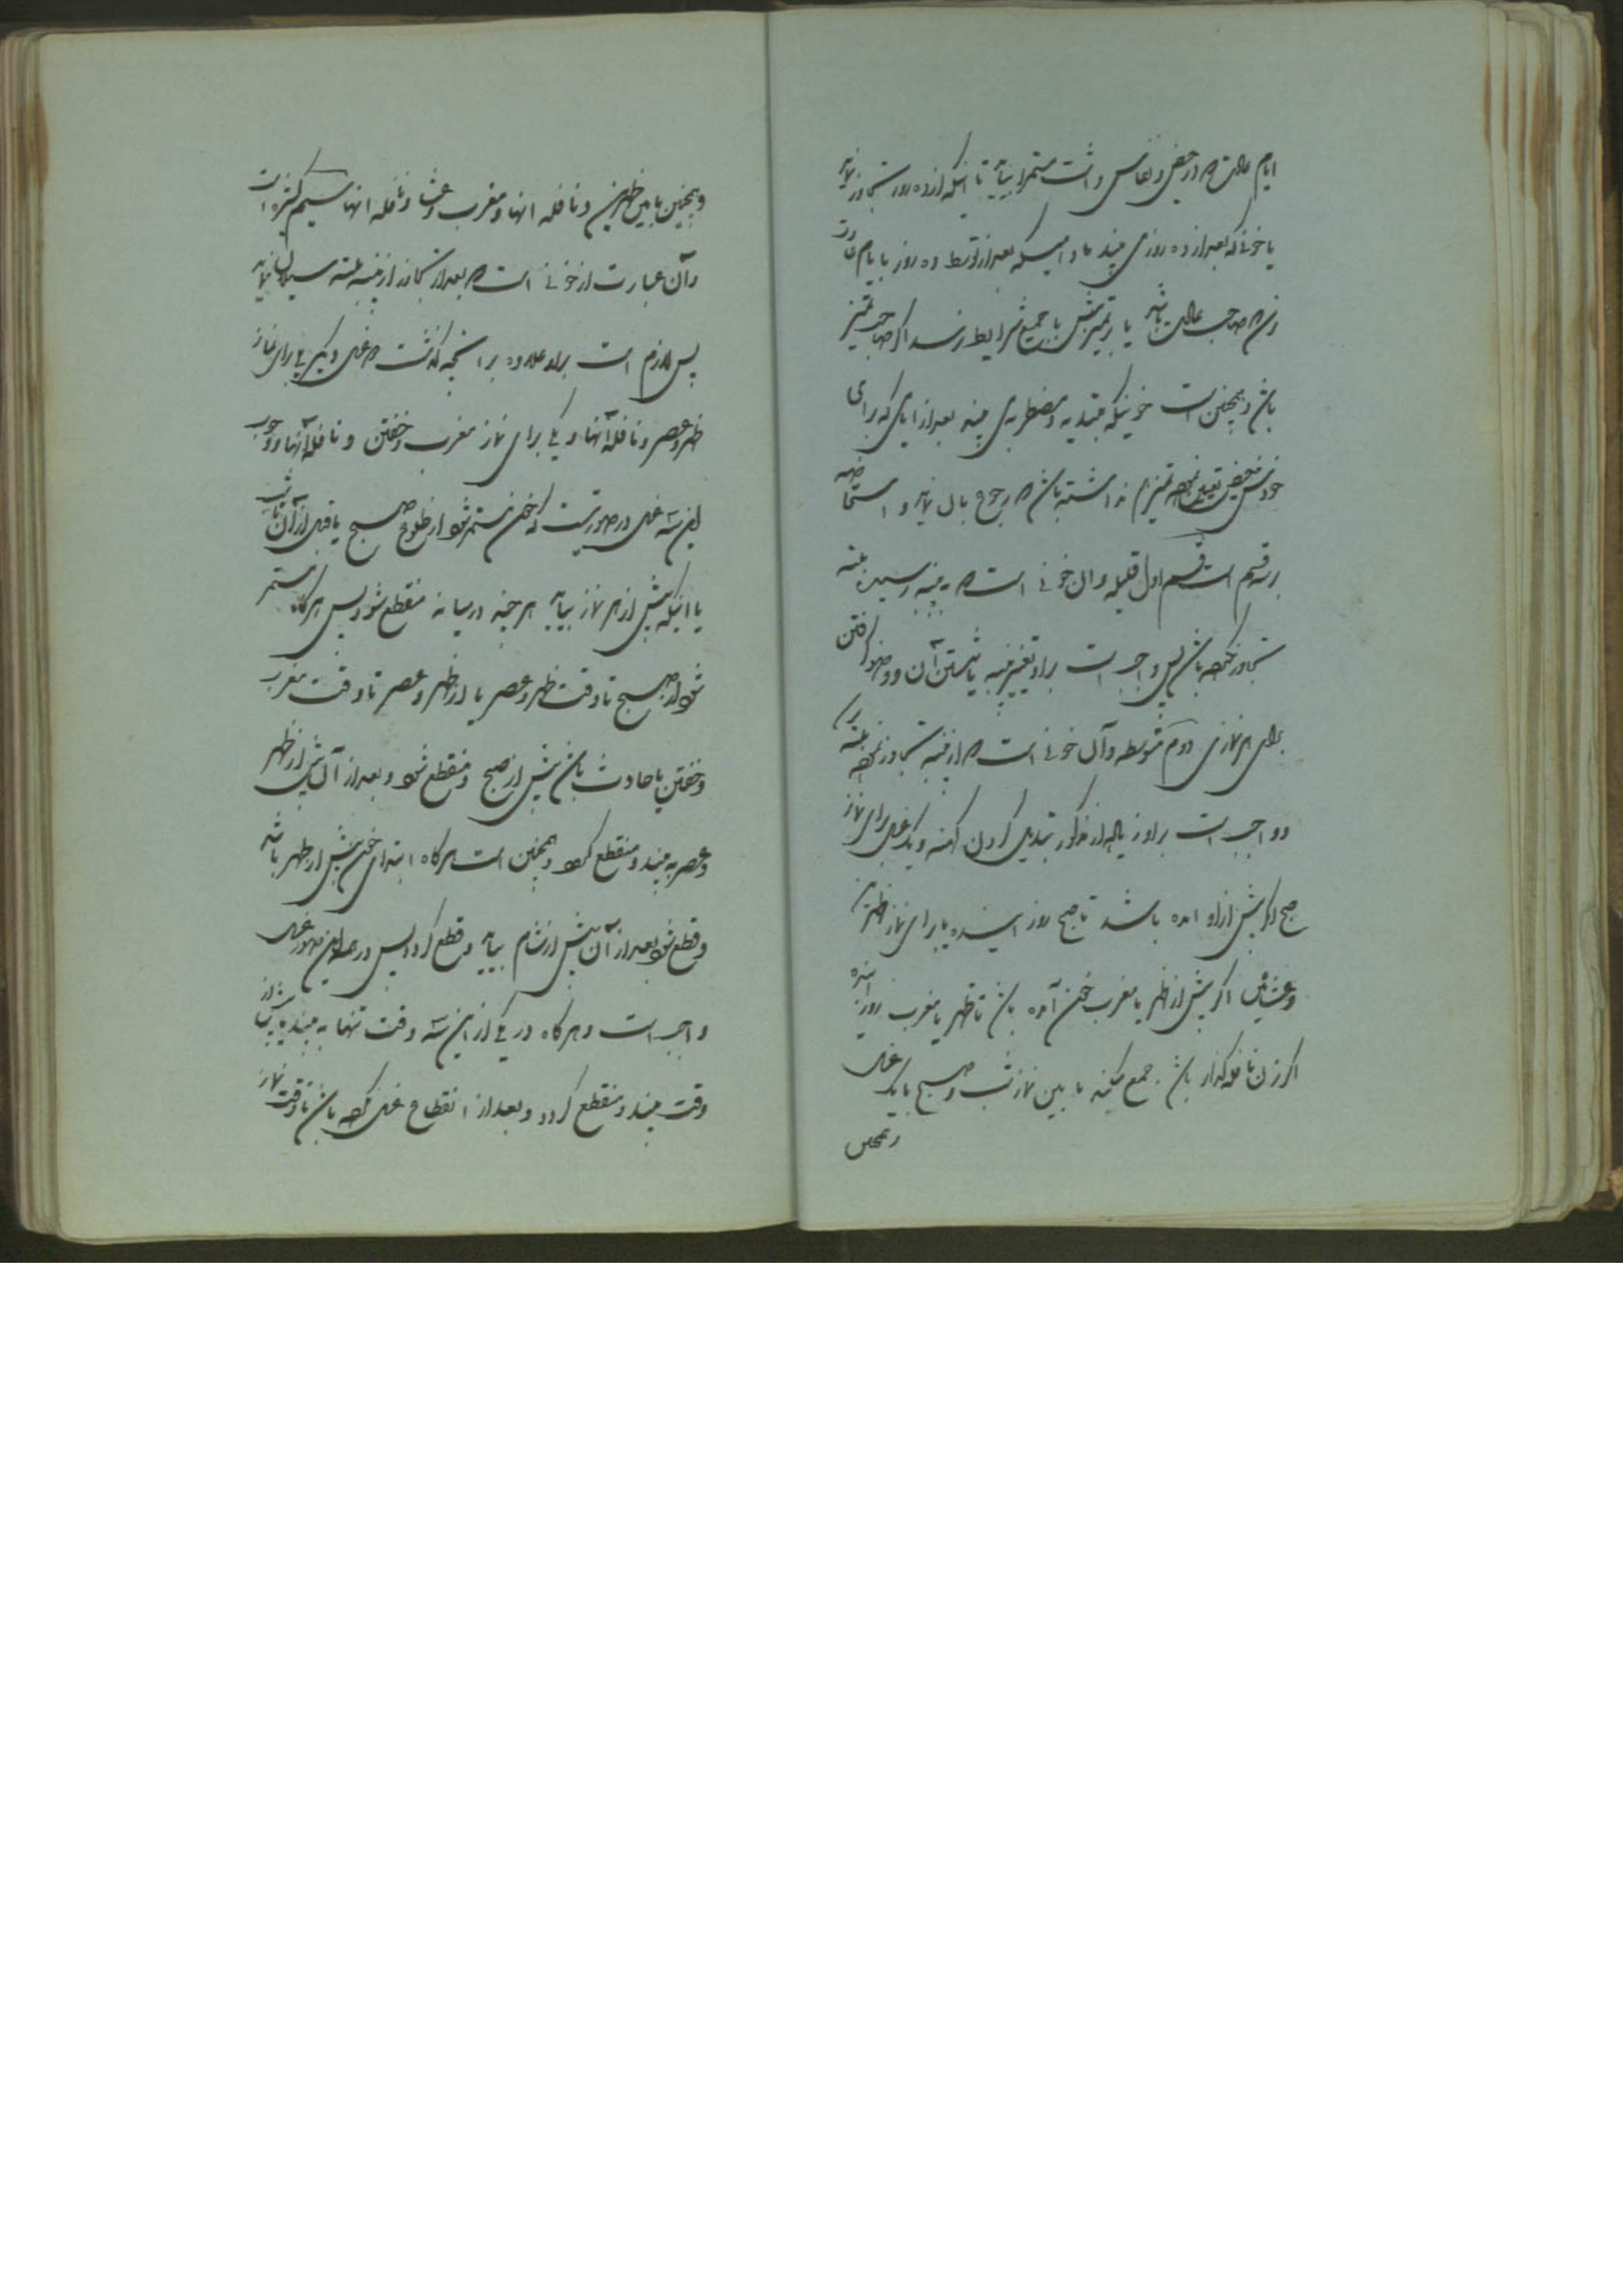 ایام عادت که در حیض و نفاس داشت مستمرا بیاید تا اینکه از ده روز تجاوز نماید
یا خونی که بعد از ده روز می بیند مادامیکه بعد از توسط ده روز با ایام عادت
زن که صاحب عادت باشد یا تمیزش با جمیع شرایط رسد اگر صاحب تمیز
باشد و همچنین است خونیکه مبتدیه و مضطربه می بیند بعد از ایامی که برای
خودش حیض تعیین نموده تمیزهم نداشته باشد که رجوع بآن نماید و استحاضه
بر سه قسم است قسم اول قلیله و ان خونی است که به پنبه رسیده بسته
تجاوز نکرده باشد پس واجب است براو تغییر پنبه یا شستن آن و وضو گرفتن
برای هر نمازی دوم متوسطه و آن خونی است که از پنبه تجاوز نموده بسته
و واجب است براو زیاده از مذکور تبدیل کردن کهنه و یک غسل برای نماز
صبح اگر پیش از او امده باشد تا صبح روز اینده یا برای نماز ظهرین
و عشائین اگر پیش از ظهر یا مغرب خون آمده باشد تا ظهر یا مغرب روز اینده
اگر زن نافله گذار باشد جمع میکند ما بین نماز شب و صبح بایک غسل
وهمچنین
وهمچنین مابین ظهرین و نافله انها و مغرب و عشا و نافله انها سیم کثیره است
وآن عبارت از خونی است که بعد از تجاوز از پنبه بسته سیلان نماید
پس لازم است براو علاوه بر انچه گذشت دو غسل دیگر یکی برای نماز
ظهر و عصر و نافله آنها و یکی برای نماز مغرب و خفتن و نافله آنها و وجوب
این سه غسل در صورتیست که خون مستمر شود از طلوع صبح یا قبل از آن تا شب
یا اینکه پیش از هر نماز بیاید هر چند در میانه منقطع شود پس هرگاه مستمر
شود از صبح تا وقت ظهر و عصر یا از ظهر و عصر تا وقت مغرب
و خفتن یا حادث باشد پیش از صبح و منقطع شود و بعد از آن پیش از ظهر
و عصر به بیند و منقطع گردد و همچنین است هرگاه ابتدای خون پیش از ظهر باشد
و قطع شود بعد از آن پیش از شام بیاید و قطع گردد پس در همه این صور غسل
واجب است و هرگاه در یکی از این سه وقت تنها به بیند یا پیش از
وقت بیند و منقطع گردد و بعد از انقطاع غسل نکرده باشد تا وقت نماز